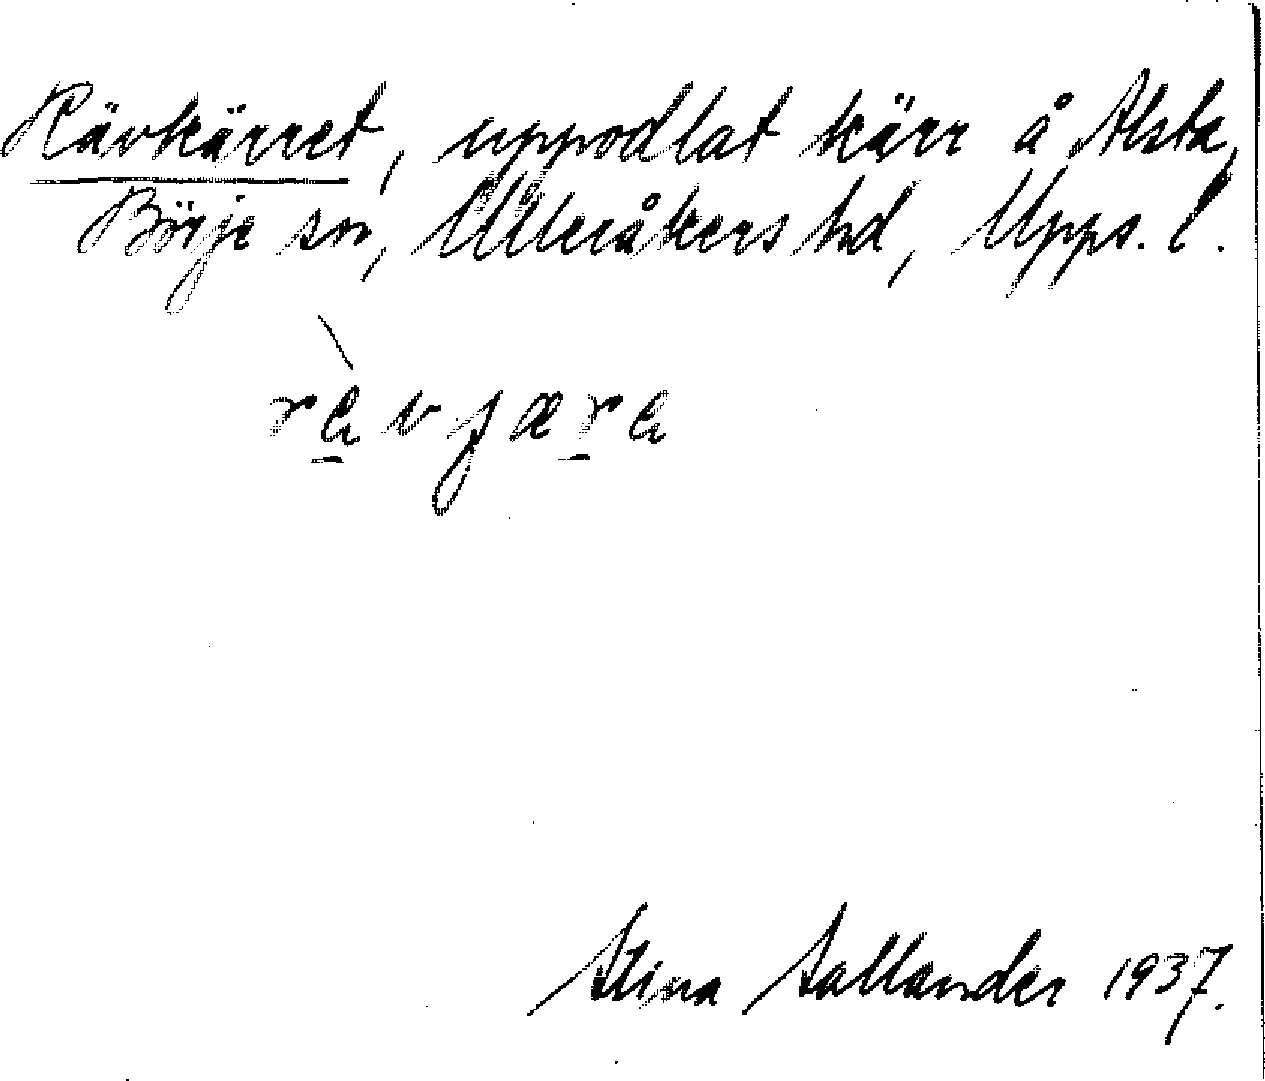 Rävkärret, uppodlat kärr å Alsta,
Börje sn, Ulleråkers hd, Upps. l.
Stina Sallander 1937.